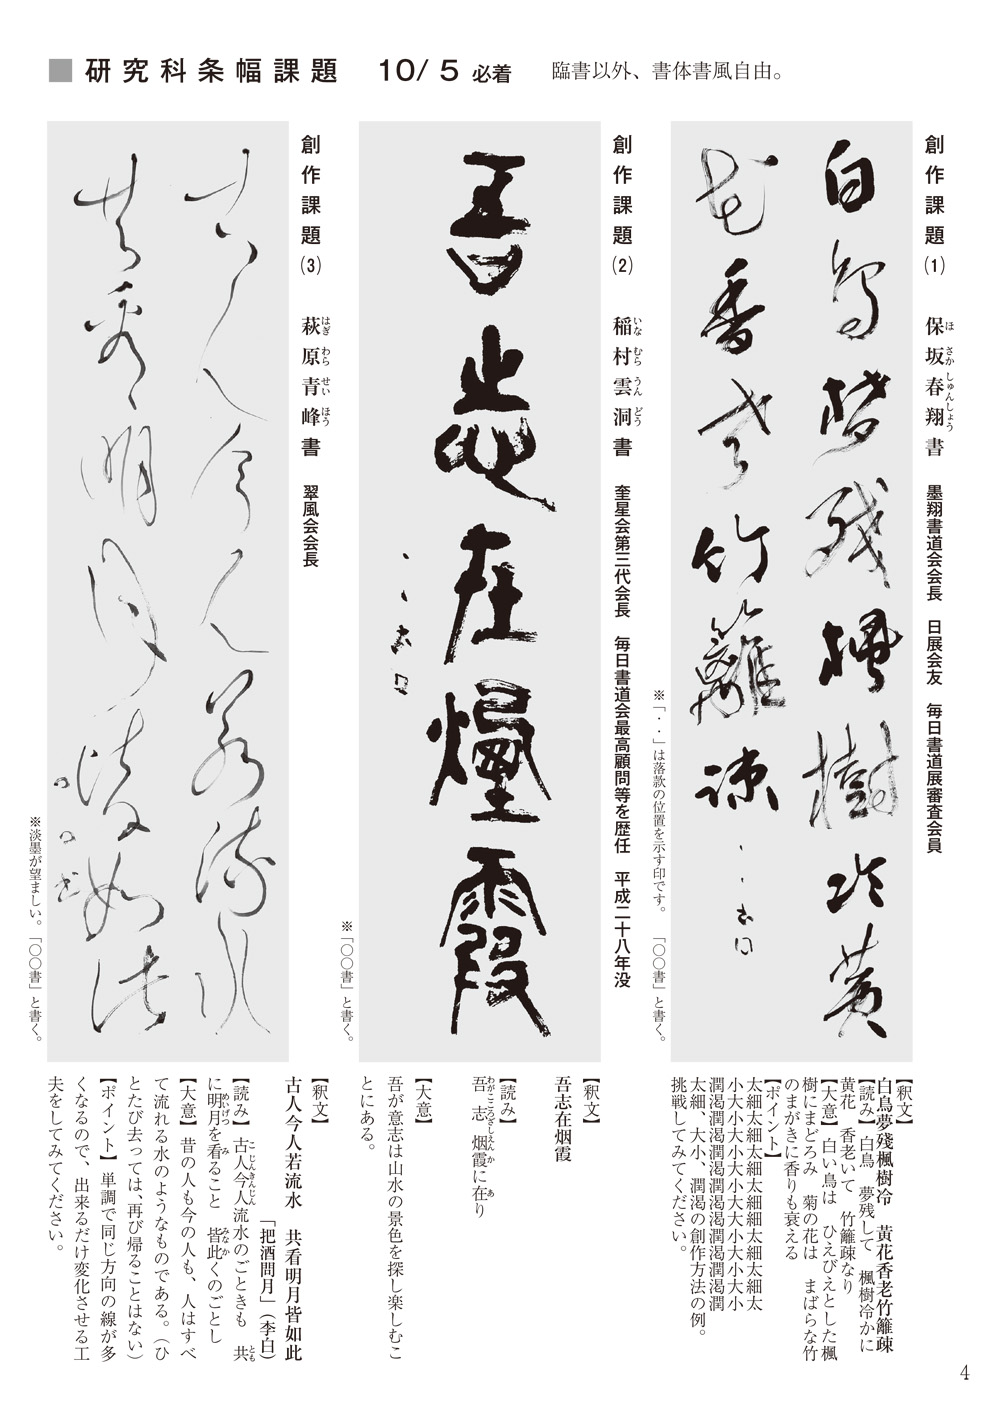 ■ 研究科条幅課題　10/5 必着　臨書以外、書体書風自由。
創作課題(1)　保坂春翔書　墨翔書道会会長　日展会友　毎日書道展審査会員
ほ さか しゅんしょう
白鳥夢残楓樹冷黄
花香老竹籬疎
※「・・」は落款の位置を示す印です。　「〇〇書」と書く。
【釈文】
白鳥夢殘楓樹冷　黄花香老竹籬疎
【読み】白鳥　夢残して　楓樹冷かに
黄花　香老いて　竹籬疎なり
【大意】白い鳥は　ひえびえとした楓
樹にまどろみ　菊の花は　まばらな竹
のまがきに香りも衰える
【ポイント】
太細太細太細太細太細細太細太細太
小大小大小大小大小大小大小大小
潤渇潤渇潤渇潤渇潤渇潤渇潤渇潤
太細、大小、潤渇の創作方法の例。
挑戦してみてください。
創作課題(2)　稲村雲洞書　奎星会第三代会長　毎日書道会最高顧問等を歴任　平成二十八年没
いな むら うん どう
吾志在烟霞
※「〇〇書」と書く。
【釈文】
吾志在烟霞
【読み】
吾　志　烟霞に在り
わがこころざしえんか あ
【大意】
吾が意志は山水の景色を探し楽しむこ
とにある。
創作課題(3)　萩原青峰書　翠風会会長
はぎ わら せい ほう
古人今人若流水
共看明月皆如此
※淡墨が望ましい。　「〇〇書」と書く。
【釈文】
古人今人若流水　共看明月皆如此
「把酒問月」（李白）
【読み】　古人今人流水のごときも　共
こじんきんじん とも
に明月を看ること　皆此くのごとし
めいげつ み みなか
【大意】昔の人も今の人も、人はすべ
て流れる水のようなものである。（ひ
とたび去っては、再び帰ることはない）
【ポイント】　単調で同じ方向の線が多
くなるので、出来るだけ変化させる工
夫をしてみてください。
4